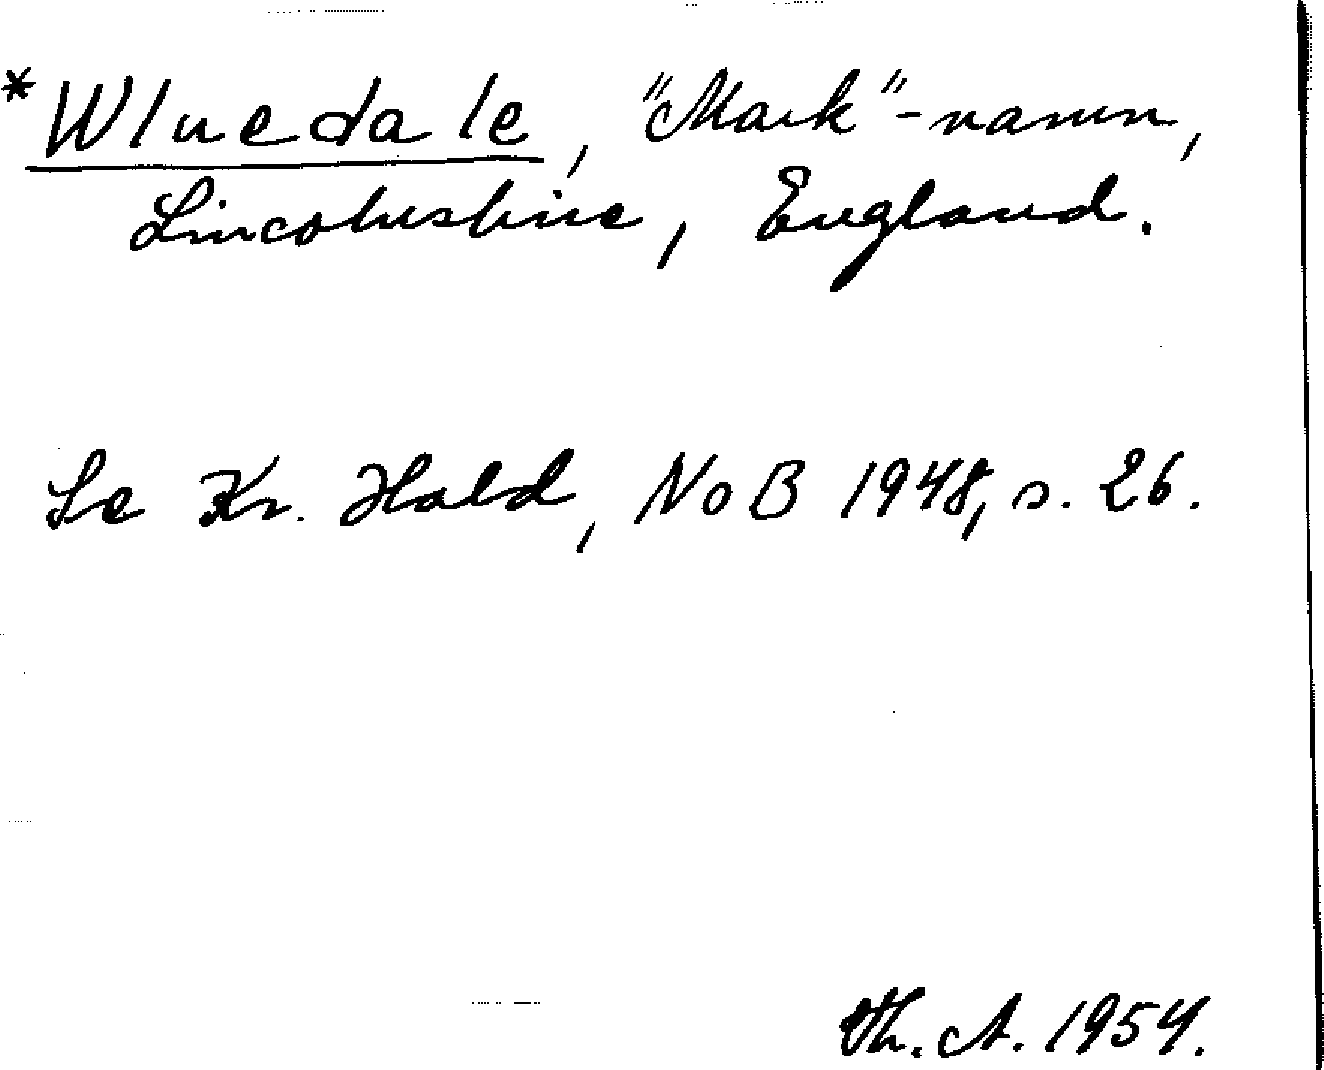 *Wluedale, "Mark"-namn,
Lincolnshire, England.
Se Kr. Hald, NoB 1948, s. 26.
Th. A. 1954.